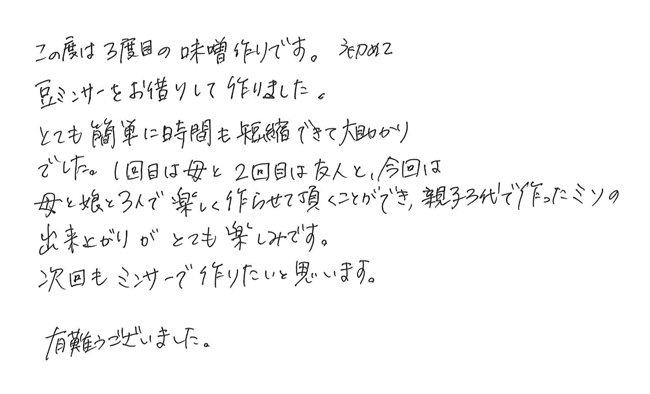 この度は3度目の味噌作りです。 初めて
豆ミンサーをお借りして作りました。
とても簡単に時間も短縮できて大助かり
でした。1回目は母と2回目は友人と、今回は
母と娘と3人で楽しく作らせて頂くことができ、親子3代で作ったミソの
出来上がりがとても楽しみです。
次回もミンサーで作りたいと思います。
有難うございました。